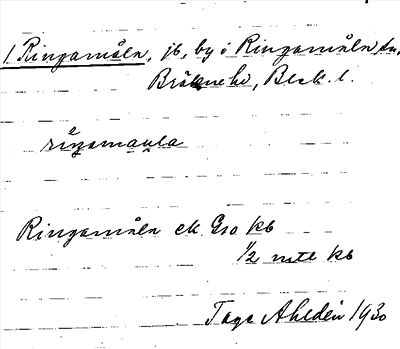 1 Ringamåla, jb, by i Ringamåla sn,
Bräkne hd, Blek. l.
ringamaula
Ringamåla ek. Gso kb
1/2 mtl kb
Tage Ahldén 1930